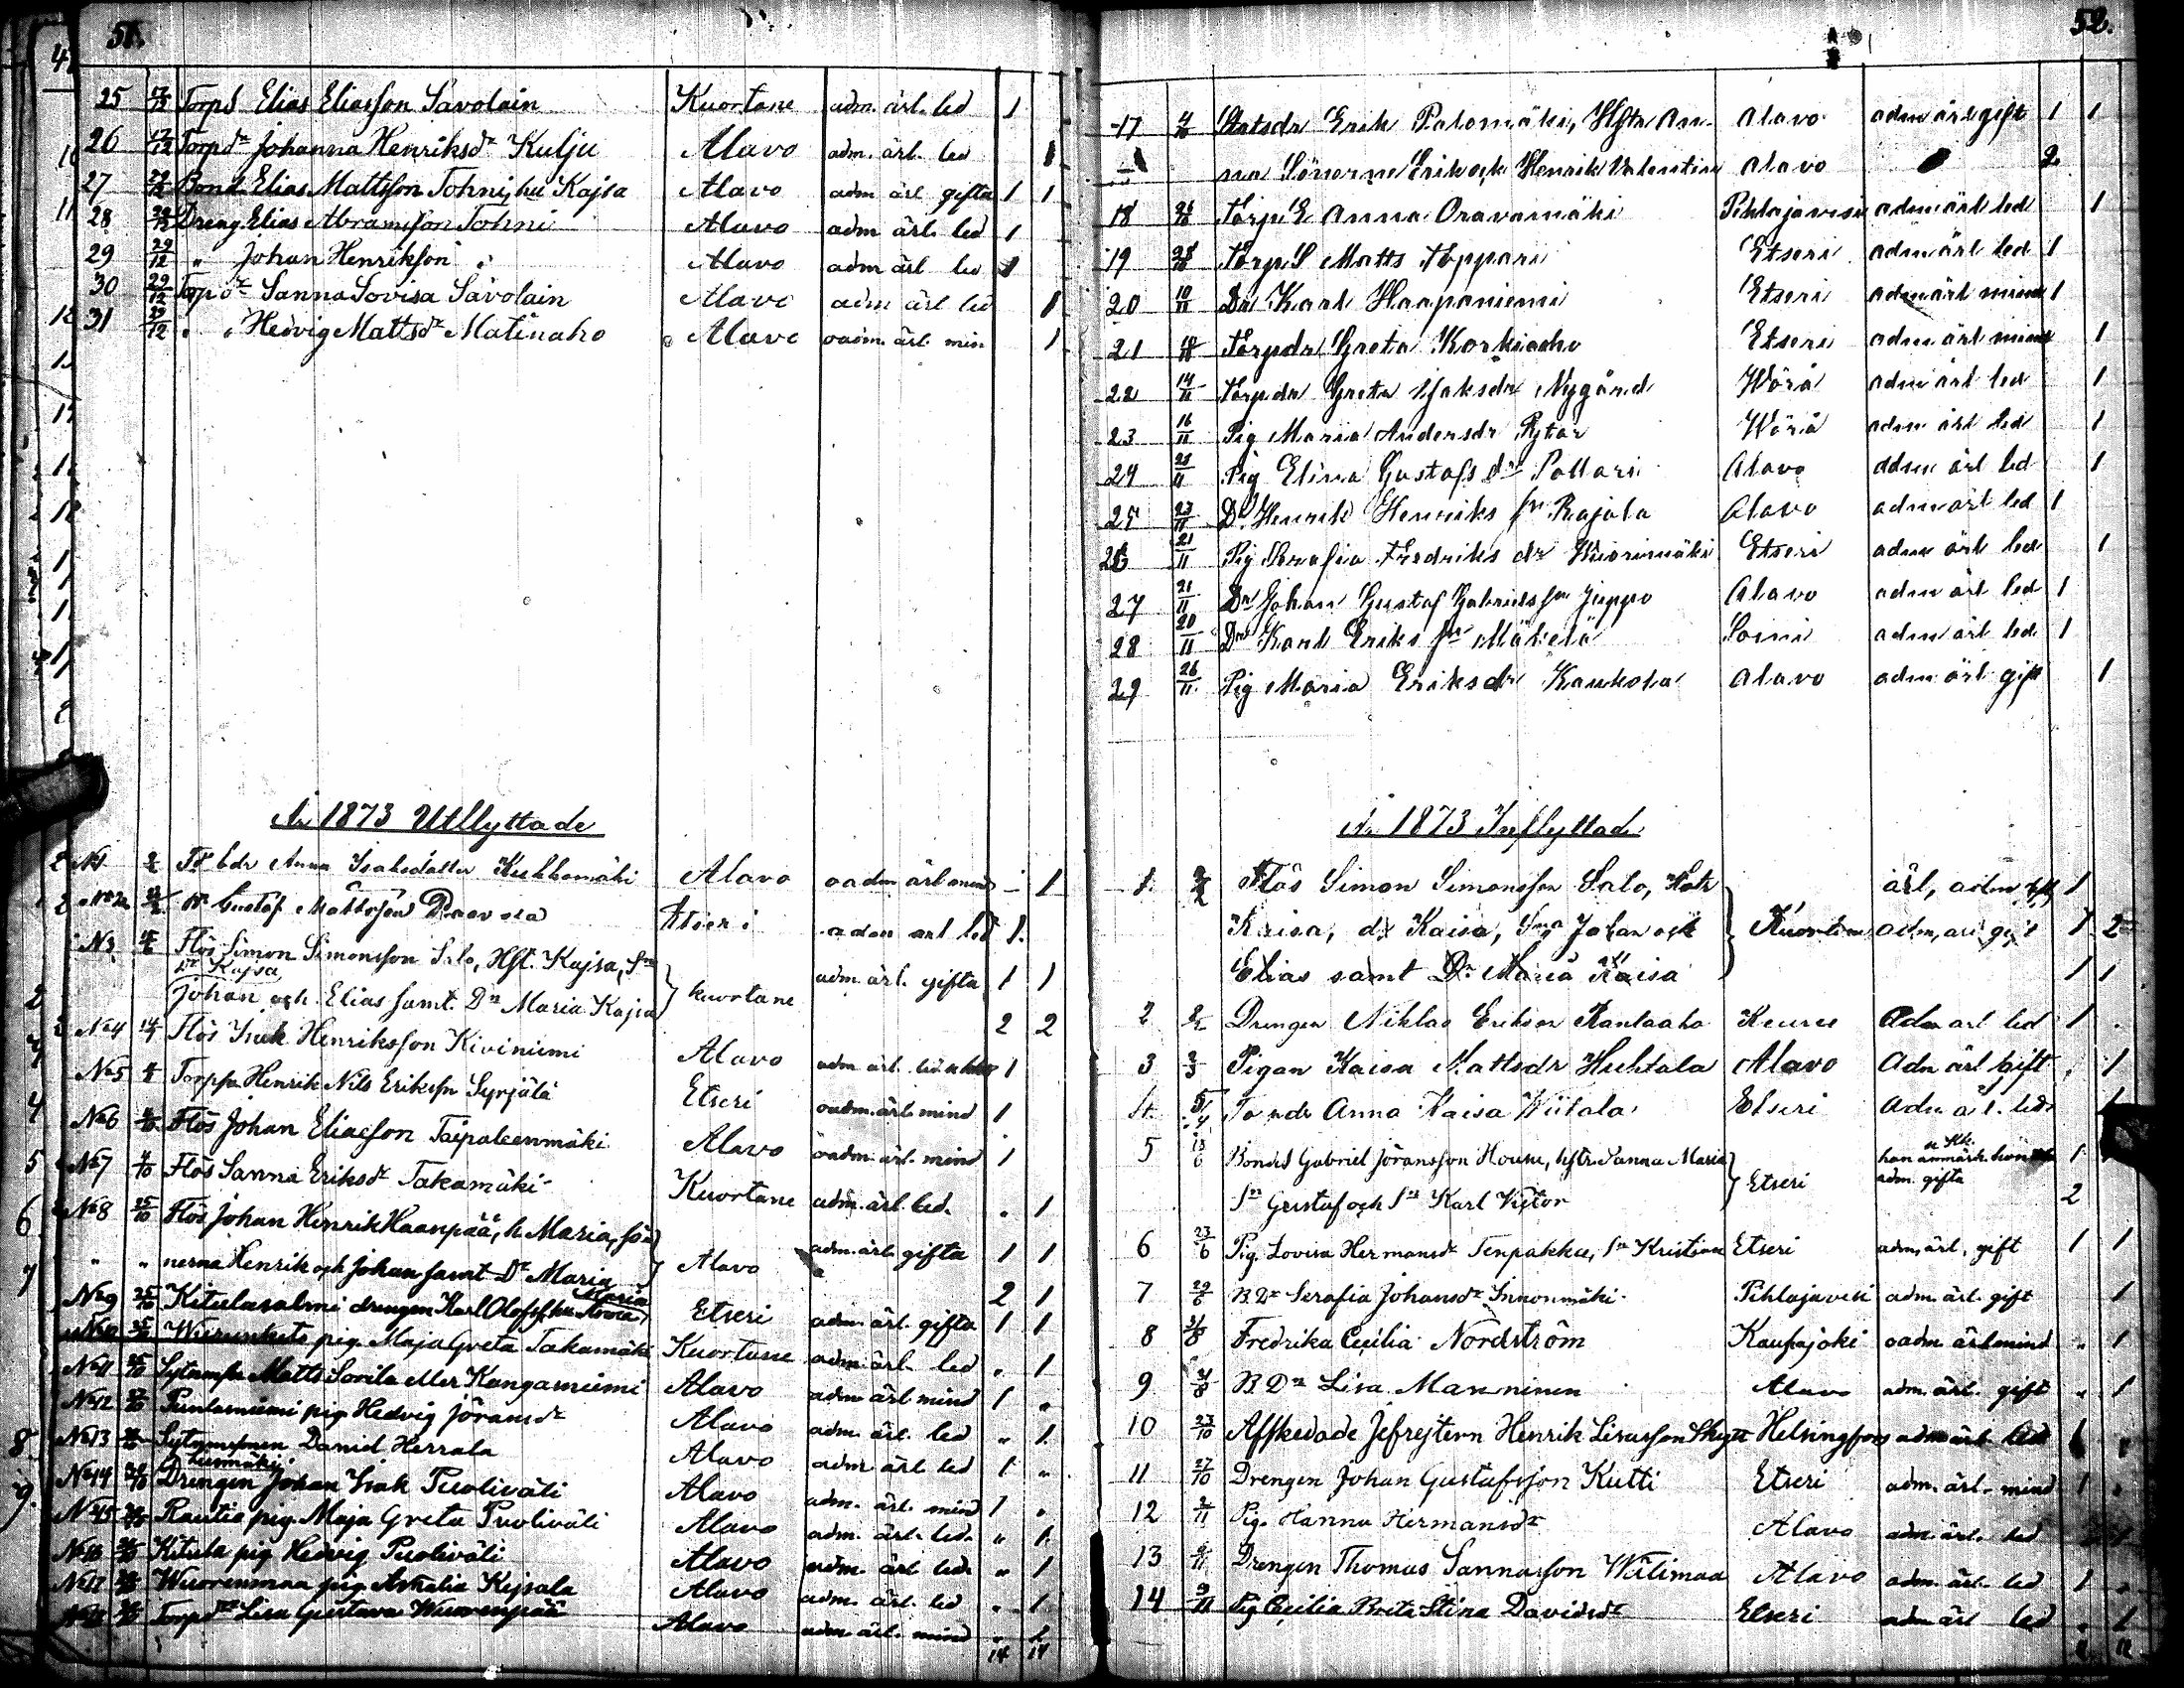 51.
25 17/12 Torpd Elias Eliasson Savolain Kuortane adm. ärl. led 1
26 17/12 Torpdr Johanna Henriksdr Kulju Alavo adm. ärl. led 1
27 Bond. Elias Mattsson Tohni, hu Kajsa Alavo adm ärl gifta 1 1
28 Dreng Elias Abramsson Tohni Alavo adm ärl. led 1
29 29/12 " Johan Henriksson " Alavo adm ärl led 1
30 29/12 Torpdr Sanna Lovisa Savolain Alavo adm ärl led 1
31 29/12 " " Hedvig Mattsdr Matinaho Alavo oadm. ärl. min 1
År 1873 Utflyttade
N1 Anna Isaksdotter Kukkomäki Alavo oadm ärl mind - 1
No 2 Dr Gustaf Mattsson Etseri adm ärl led 1.
N3 Flös Simon Simonsson Salo, Hst. Kajsa, Sn
Dr Kajsa
Johan och Elias samt Dr Maria Kajsa kuortane adm. ärl. gifta 1 1
2 2
No4 Flös Isak Henriksson Kiviniemi Alavo adm ärl. led 1
No5 Henrik Nils Eriksson Syrjälä Etseri oadm. ärl. mind 1
No6 Flös Johan Eliasson Taipaleenmäki Alavo oadm. ärl. mind 1
No7 Flös Sanna Eriksdr Takamäki Kuortane adm. ärl. led. " 1
No8 25/10 Flös Johan Henrik Haanpää, h. Maria, sön
" " nerna Henrik och Johan samt Dr Maria Alavo adm. ärl. gifta 1 1
2 1
Maria
No9 25/10 Kitulasalmi drengen Karl Olofsson hu Etseri adm. ärl. gifta 1 1
pig. Maja Greta Takamäki Kuortane adm. ärl. led " 1
No11 Matts Sorila eller Kangasniemi Alavo adm ärl mind 1 "
No12 Puntarniemi pig. Hedvig Jöransdr Alavo adm. ärl. led " 1.
No13 Daniel Herrala Alavo adm ärl led 1 "
No14 Drengen Johan Isak Puoliväli Alavo adm. ärl. mind 1 "
No15 Rautio pig. Maja Greta Puoliväli Alavo adm. ärl. led. " 1.
No16 Kitula pig. Hedvig Puoliväli Alavo adm. ärl led. " 1
No17 Wuorenmaa pig. Amalia Kejsala Alavo adm. ärl led " 1
Torpdr Lisa Gustava Wuorenpää Alavo adm. ärl. mind " 1
14 14
52.
17 Erik Palomäki, Hstr An- Alavo adm ärl gift 1 1
na Sönerne Erik och Henrik Valentin Alavo 2.
18 Anna Oravamäki Pihlajavesi adm ärl led 1
19 Torp S Matts Toppari Etseri adm ärl led 1
20 10/11 Dr Karl Haapaniemi Etseri adm ärl mind 1
21 Torpdr Greta Korkiaaho Etseri adm ärl mind 1
22 14/11 Torpdr Greta Isaksdr Nygård Wörå adm ärl led 1
23 16/11 Pig Maria Andersdr Rytar Wörå adm ärl led 1
24 21/11 Pig Elina Gustafs dr Pollari Alavo adm ärl led 1
25 23/11 Dr Henrik Henriks sn Rajala Alavo adm ärl led 1
26 21/11 Pig Serafia Fredriks dr Wuorimäki Etseri adm ärl led 1
27 21/11 Dr Johan Gustaf Gabrielsson Juppo Alavo adm ärl led 1
28 20/11 Dr Karl Eriks sn Mäkelä Soini adm ärl led 1
29 26/11 Pig Maria Eriksdr Kaukola Alavo adm ärl gift 1
År 1873 Inflyttad
1. 2/2 Flös Simon Simonsson Salo, Hstr ärl, adm gift 1
Kaisa, dr Kaisa, Sna Johan och Kuortane adm, ärl gift 1 2
Elias samt Dr Maria Kaisa 1 1
2 Drengen Niklas Eriksson Rantaaho Keuru Adm ärl led 1 .
3 3/3 Pigan Kaisa Mattsdr Huhtala Alavo Adm ärl gift . 1
4. 5/4 Anna Kaisa Wiitala Etseri Adm ärl. led. 1
5 Bondes Gabriel Jöransson Houru, hstr Sanna Maria han anmärk. hon
Sn Gustaf och Sn Karl Victor Etseri adm. gifta 1
2
6 23/6 Pig. Lovisa Hermansdr Tenpakka, Sn Kristian Etseri adm, ärl, gift 1 1
7 29/6 B. Dr Serafia Johansdr Innonmäki Pihlajavesi adm. ärl. gift 1
8 31/8 Fredrika Cecilia Nordström Kauhajoki oadm ärl mind " 1
9 B. Dr Lisa Manninen Alavo adm. ärl. gift " 1
10 23/10 Afskedade Jefrejtern Henrik Lisasson Skytt Helsingfors adm ärl led 1 "
11 27/10 Drengen Johan Gustafsson Kutti Etseri adm. ärl. mind 1 "
12 Pig. Hanna Hermansdr Alavo adm. ärl. led 1
13 Drengen Thomas Sannasson Wälimaa Alavo adm. ärl. led 1 "
14 9/11 Pig Cecilia Brita Stina Davidsdr Etseri adm ärl led " 1